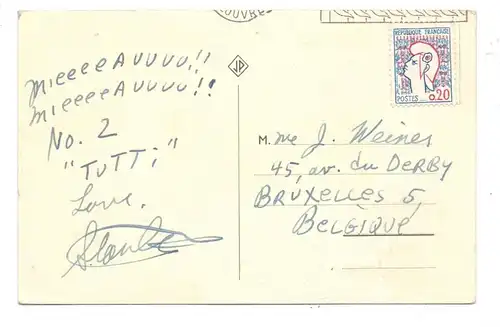 LOUVRE
RÉPUBLIQUE FRANÇAISE
POSTES 0,20
JP
mieeeeAUUUU!!
mieeeeAUUUU!!
No. 2
"TUTTi"
Love,
M. me J. Weiner
45, av. du DERBY
BRUXELLES 5,
BELGIQUE